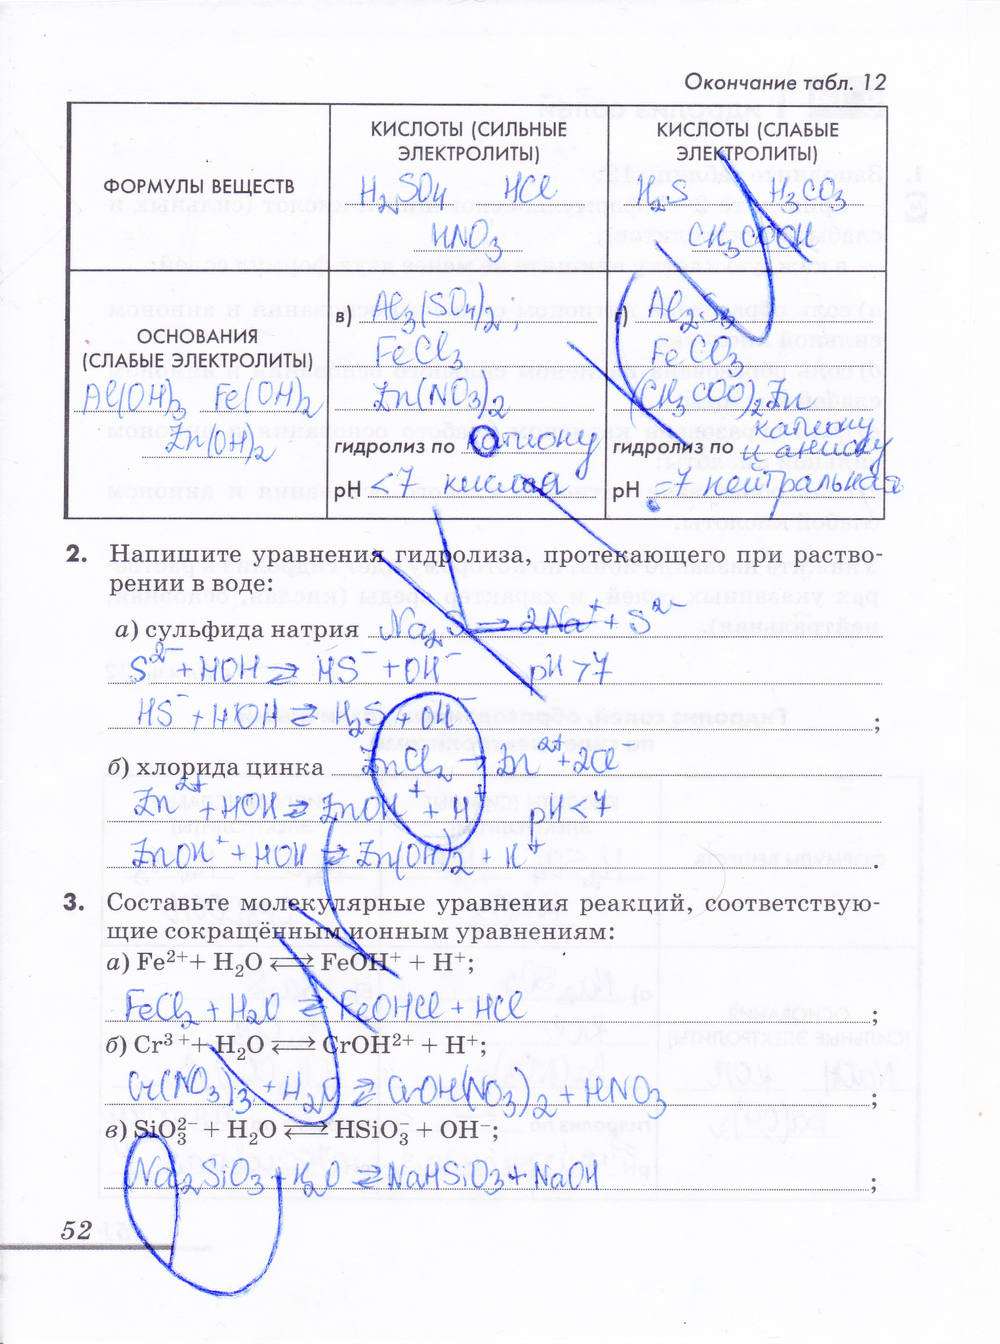 Окончание табл. 12
ФОРМУЛЫ ВЕЩЕСТВ
КИСЛОТЫ (СИЛЬНЫЕ
ЭЛЕКТРОЛИТЫ)
H₂SO₄ HCl
HNO₃
КИСЛОТЫ (СЛАБЫЕ
ЭЛЕКТРОЛИТЫ)
H₂S H₃CO₃
CH₃COOH
ОСНОВАНИЯ
(СЛАБЫЕ ЭЛЕКТРОЛИТЫ)
Al(OH)₃ Fe(OH)₂
Zn(OH)₂
в) Al₃(SO₄)₂;
FeCl₃
Zn(NO₃)₂
гидролиз по катиону
pH <7 кислая
г) Al₂S₃
FeCO₃
(CH₃COO)₂Zn
катиону
гидролиз по и аниону
pH =7 нейтральная
2. Напишите уравнения гидролиза, протекающего при раство-
рении в воде:
а) сульфида натрия Na₂S ⇄ 2Na⁺ + S²⁻
S²⁻ + HOH ⇄ HS⁻ + OH⁻ pH >7
HS⁻ + HOH ⇄ H₂S + OH⁻ ;
б) хлорида цинка ZnCl₂ → Zn²⁺ + 2Cl⁻
Zn²⁺ + HOH ⇄ ZnOH⁺ + H⁺ pH <7
ZnOH⁺ + HOH ⇄ Zn(OH)₂ + H⁺ .
3. Составьте молекулярные уравнения реакций, соответствую-
щие сокращённым ионным уравнениям:
а) Fe²⁺ + H₂O ⇄ FeOH⁺ + H⁺;
FeCl₂ + H₂O ⇄ FeOHCl + HCl ;
б) Cr³⁺ + H₂O ⇄ CrOH²⁺ + H⁺;
Cr(NO₃)₃ + H₂O ⇄ CrOH(NO₃)₂ + HNO₃ ;
в) SiO₃²⁻ + H₂O ⇄ HSiO₃⁻ + OH⁻;
Na₂SiO₃ + H₂O ⇄ NaHSiO₃ + NaOH ;
52